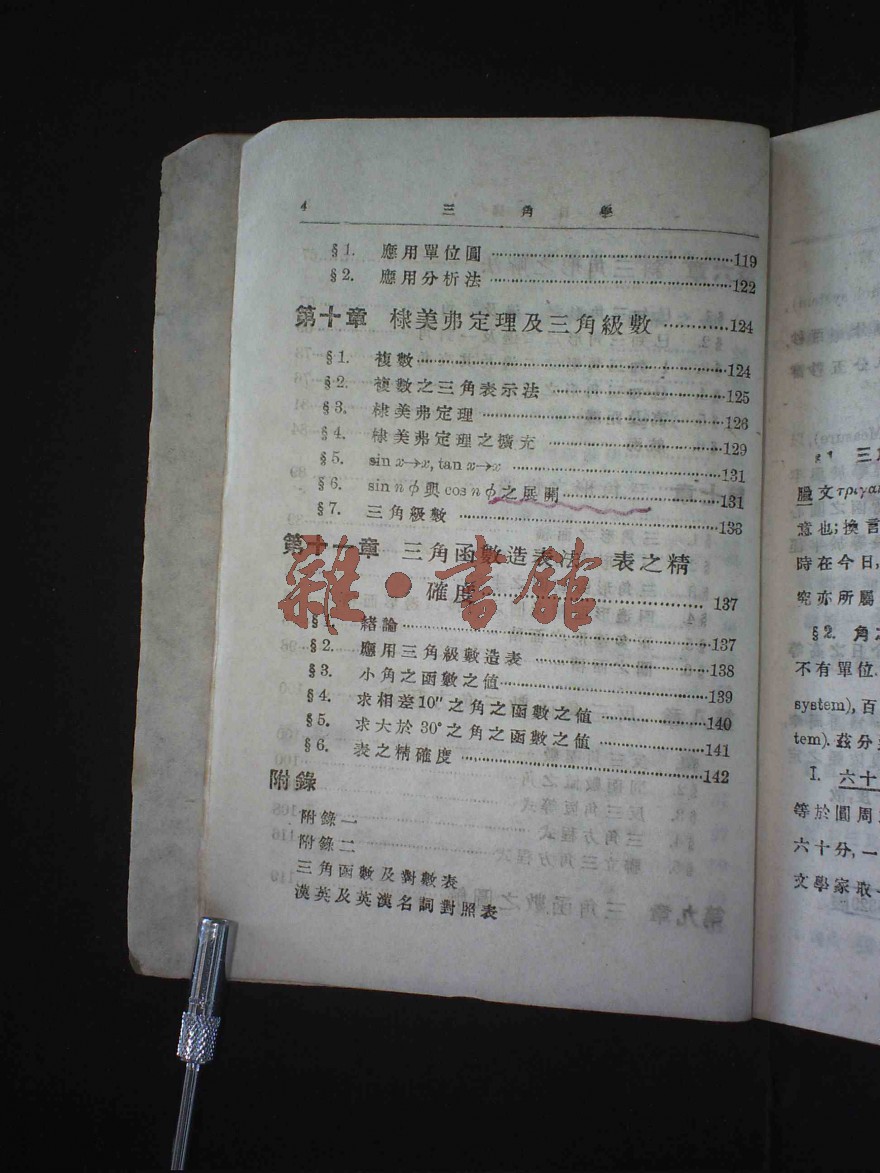 4 三角學
§1. 應用單位圓 119
§2. 應用分析法 122
第十章 棣美弗定理及三角級數 124
§1. 複數 124
§2. 複數之三角表示法 125
§3. 棣美弗定理 126
§4. 棣美弗定理之擴充 129
§5. sin x→x, tan x→x 131
§6. sin n ϕ 與 cos n ϕ 之展開 131
§7. 三角級數 133
第十一章 三角函數造表法 表之精
確度 137
§1. 緒論 137
§2. 應用三角級數造表 138
§3. 小角之函數之值 139
§4. 求相差10″之角之函數之值 140
§5. 求大於30°之角之函數之值 141
§6. 表之精確度 142
附錄
附錄一
附錄二
三角函數及對數表
漢英及英漢名詞對照表
雜·書館
§1 三
臘文τριγα
意也;換言
時在今日,
究亦所屬
§2. 角
不有單位.
system), 百
tem). 茲分
I. 六十
等於圓周
六十分,一
文學家取